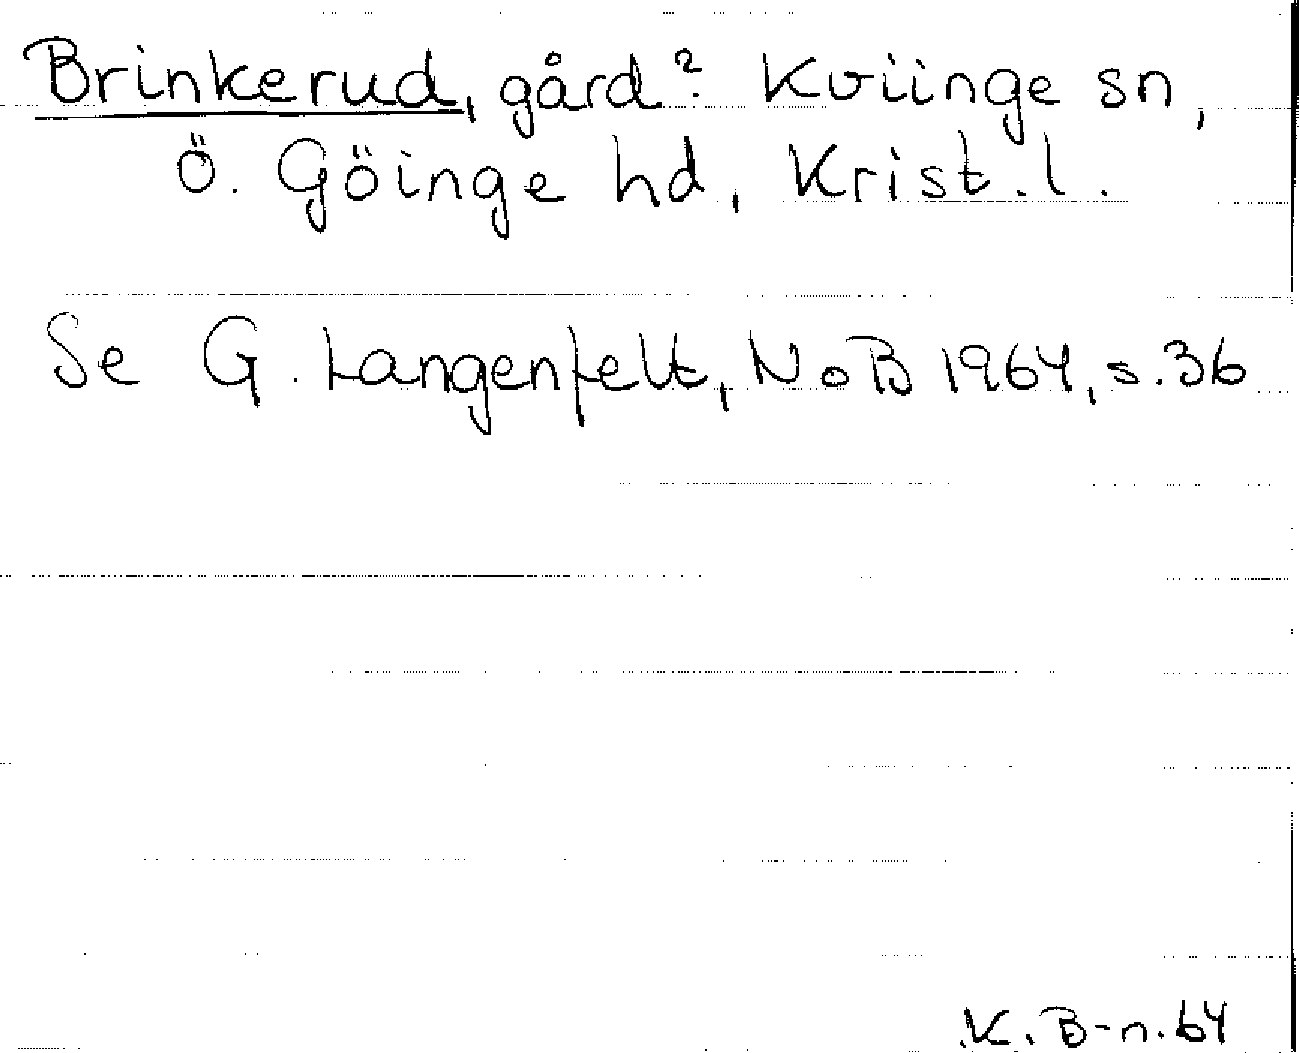 Brinkerud, gård? Kviinge sn,
Ö. Göinge hd, Krist. l.
Se G. Langenfelt, NoB 1964, s. 36
K. B-n. 64